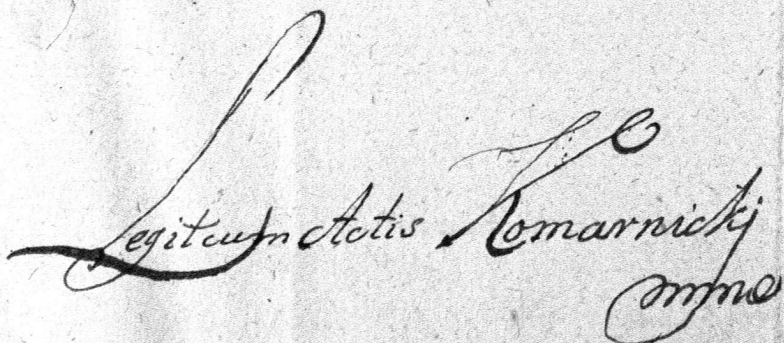 Legit cum Actis Komarnickj
mmo